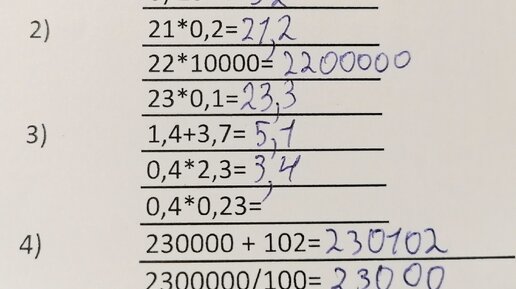 2) 21*0,2=21,2
22*10000=2200000
23*0,1=23,3
3) 1,4+3,7=5,1
0,4*2,3=3,4
0,4*0,23=
4) 230000 + 102=230102
2300000/100=23000